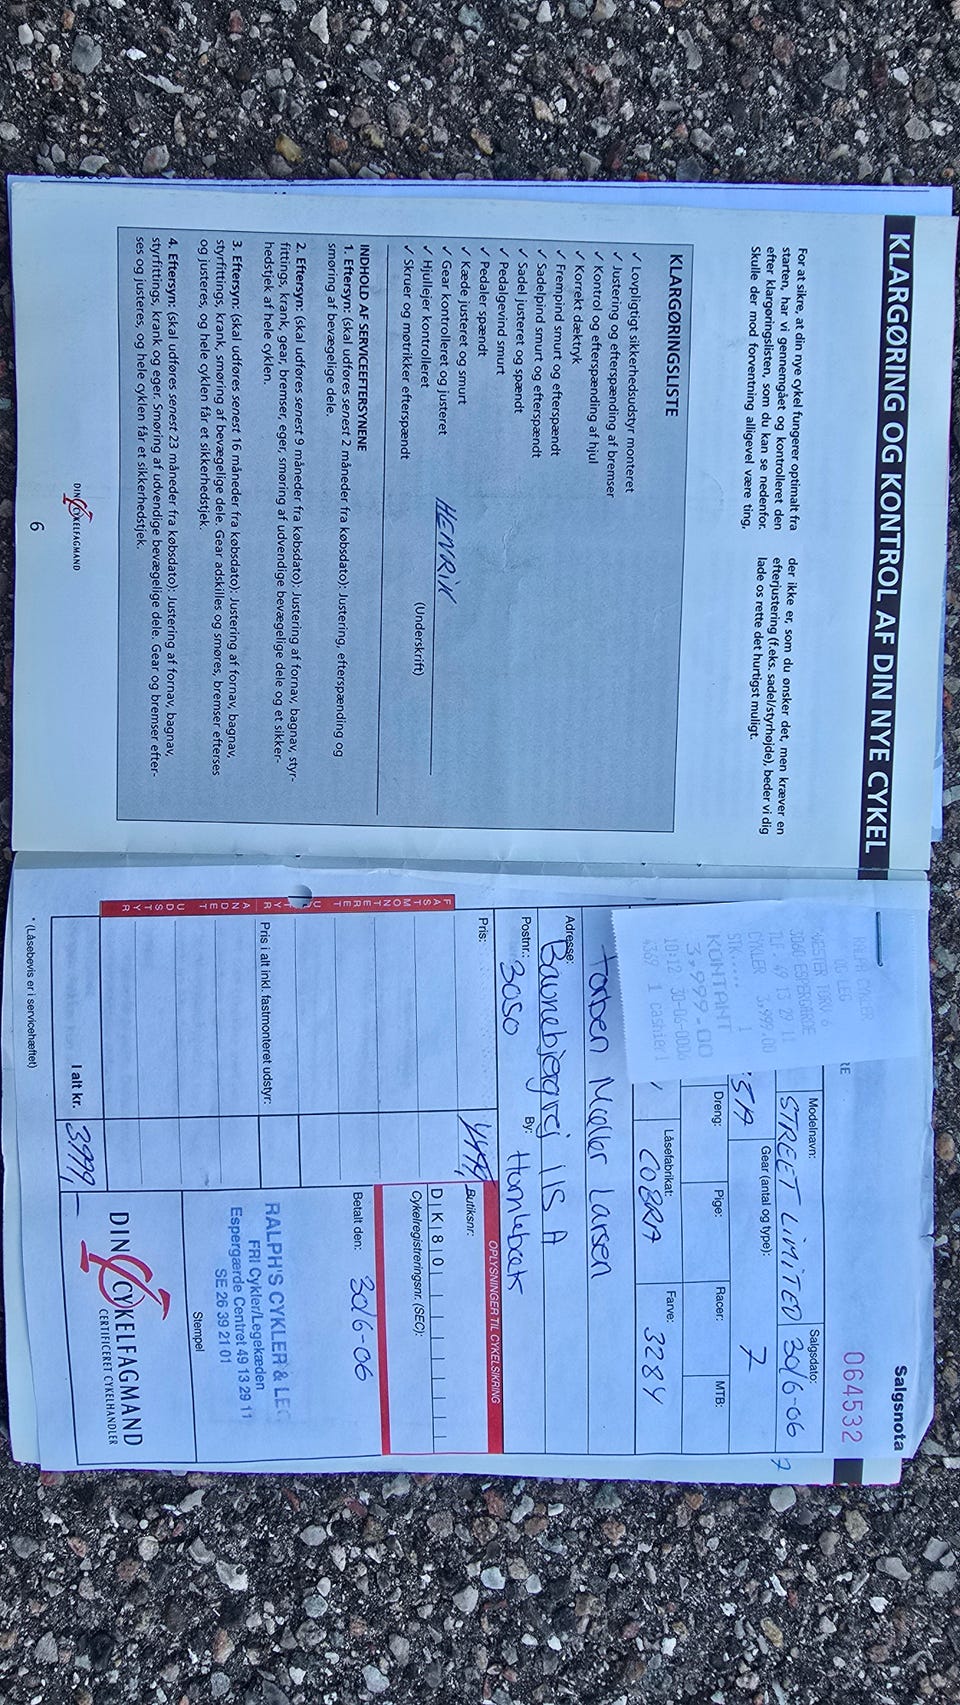 KLARGØRING OG KONTROL AF DIN NYE CYKEL
For at sikre, at din nye cykel fungerer optimalt fra
starten, har vi gennemgået og kontrolleret den
efter klargøringslisten, som du kan se nedenfor.
Skulle der mod forventning alligevel være ting,
der ikke er, som du ønsker det, men kræver en
efterjustering (f.eks. sadel/styrhøjde), beder vi dig
lade os rette det hurtigst muligt.
KLARGØRINGSLISTE
✓ Lovpligtigt sikkerhedsudstyr monteret
✓ Justering og efterspænding af bremser
✓ Kontrol og efterspænding af hjul
✓ Korrekt dæktryk
✓ Frempind smurt og efterspændt
✓ Sadelpind smurt og efterspændt
✓ Sadel justeret og spændt
✓ Pedalgevind smurt
✓ Pedaler spændt
✓ Kæde justeret og smurt
✓ Gear kontrolleret og justeret
✓ Hjullejer kontrolleret
✓ Skruer og møtrikker efterspændt
HENRIK
(Underskrift)
INDHOLD AF SERVICEEFTERSYNENE
1. Eftersyn: (skal udføres senest 2 måneder fra købsdato): Justering, efterspænding og
smøring af bevægelige dele.
2. Eftersyn: (skal udføres senest 9 måneder fra købsdato): Justering af fornav, bagnav, styr-
fittings, krank, gear, bremser, eger, smøring af udvendige bevægelige dele og et sikker-
hedstjek af hele cyklen.
3. Eftersyn: (skal udføres senest 16 måneder fra købsdato): Justering af fornav, bagnav,
styrfittings, krank, smøring af bevægelige dele. Gear adskilles og smøres, bremser efterses
og justeres, og hele cyklen får et sikkerhedstjek.
4. Eftersyn: (skal udføres senest 23 måneder fra købsdato): Justering af fornav, bagnav,
styrfittings, krank og eger. Smøring af udvendige bevægelige dele. Gear og bremser efter-
ses og justeres, og hele cyklen får et sikkerhedstjek.
DIN CYKELFAGMAND
6
Salgsnota
064532
RALPH CYKLER
OG LEG
VESTER TORV 6
3060 ESPERGÆRDE
TLF. 49 13 29 11
CYKLER 3.999,00
KONTANT
3.999.00
10:12 30-06-2006
4369 1 Cashier1
Modelnavn:
STREET LIMITED
Salgsdato:
30/6-06
Gear (antal og type):
7
Dreng:
Pige:
Racer:
MTB:
Låsefabrikat:
COBRA
Farve:
3284
Torben Møller Larsen
Adresse:
Baunebjergvej 115 A
Postnr.: 3050
By: Hornbæk
Pris: 4499,
OPLYSNINGER TIL CYKELSIKRING
Butiksnr:
DK80
Cykelregistreringsnr. (SEC):
FASTMONTERET UDSTYR
Pris i alt inkl. fastmonteret udstyr:
ANDET UDSTYR
Betalt den: 30/6-06
RALPH'S CYKLER & LEG
FRI Cykler/Legekæden
Espergærde Centret 49 13 29 11
SE 26 39 21 01
Stempel
I alt kr. 3999,-
DIN CYKELFAGMAND
CERTIFICERET CYKELHANDLER
* (Låsebevis er i servicehæftet)